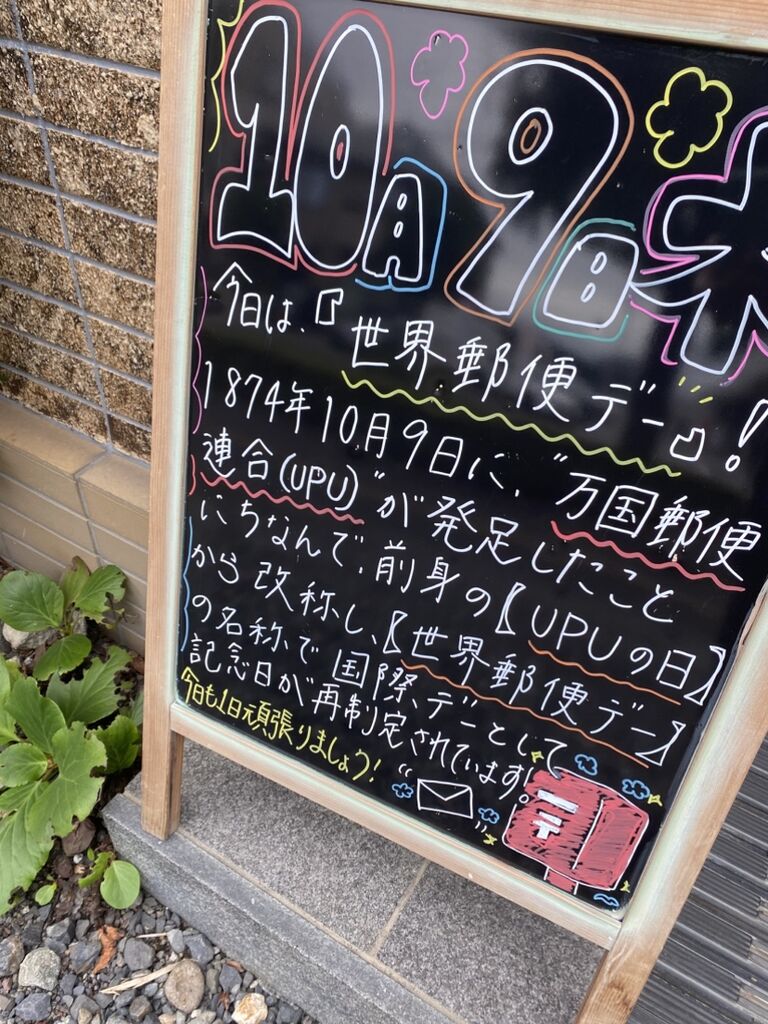 10月9日木
今日は、『世界郵便デー』!
1874年10月9日に、“万国郵便
連合(UPU)”が発足したこと
にちなんで、前身の【UPUの日】
から改称し、【世界郵便デー】
の名称で国際デーとして
記念日が再制定されています!
今日も1日頑張りましょう!
〒